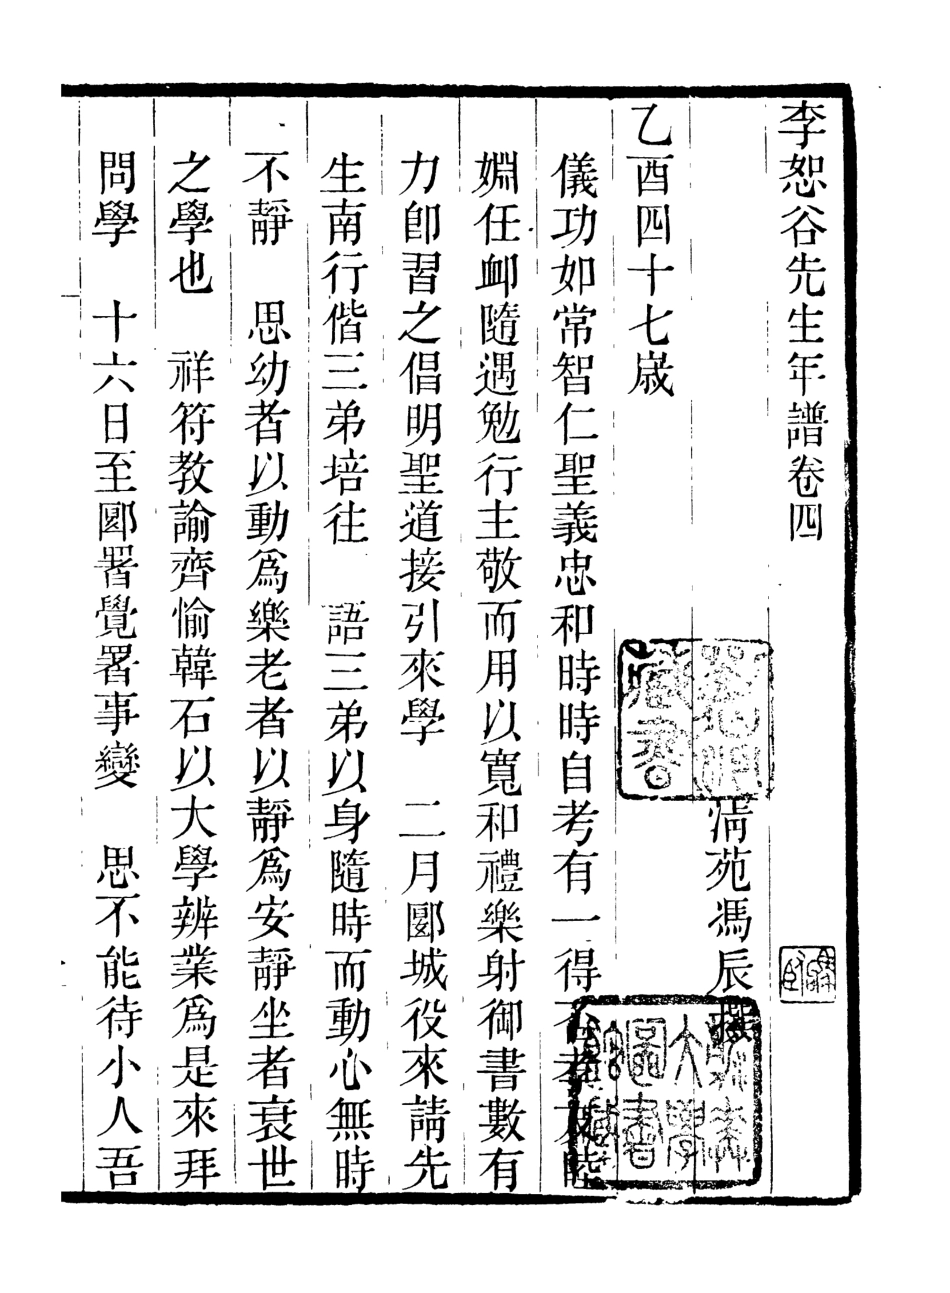 李恕谷先生年譜卷四
清苑馮辰撰
乙酉四十七歲
儀功如常智仁聖義忠和時時自考有一得否孝友睦
婣任卹隨遇勉行主敬而用以寬和禮樂射御書數有
力卽習之倡明聖道接引來學　二月郾城役來請先
生南行偕三弟培往　語三弟以身隨時而動心無時
不靜　思幼者以動爲樂老者以靜爲安靜坐者衰世
之學也　祥符教諭齊愉韓石以大學辨業爲是來拜
問學　十六日至郾署覺署事變　思不能待小人吾